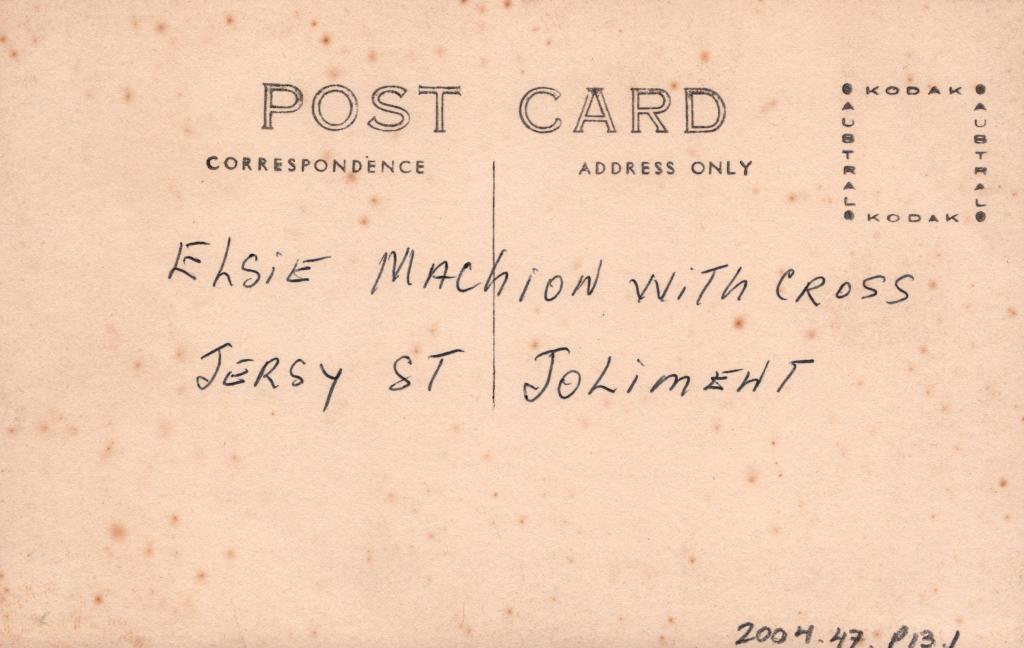 POST CARD
CORRESPONDENCE ADDRESS ONLY
KODAK
AUSTRAL
AUSTRAL
KODAK
ELSIE MACHION WITH CROSS
JERSY ST JOLIMENT
2004.47. P13.1